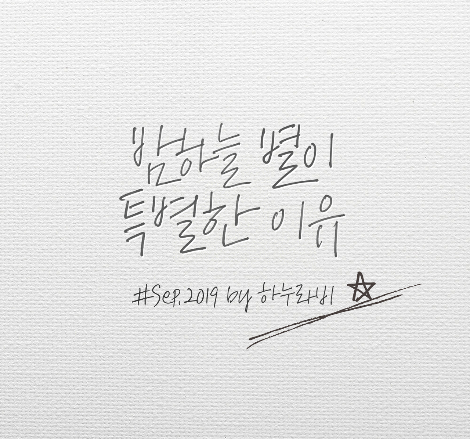 밤하늘 별이
특별한 이유
#Sep.2019 by 하누라비